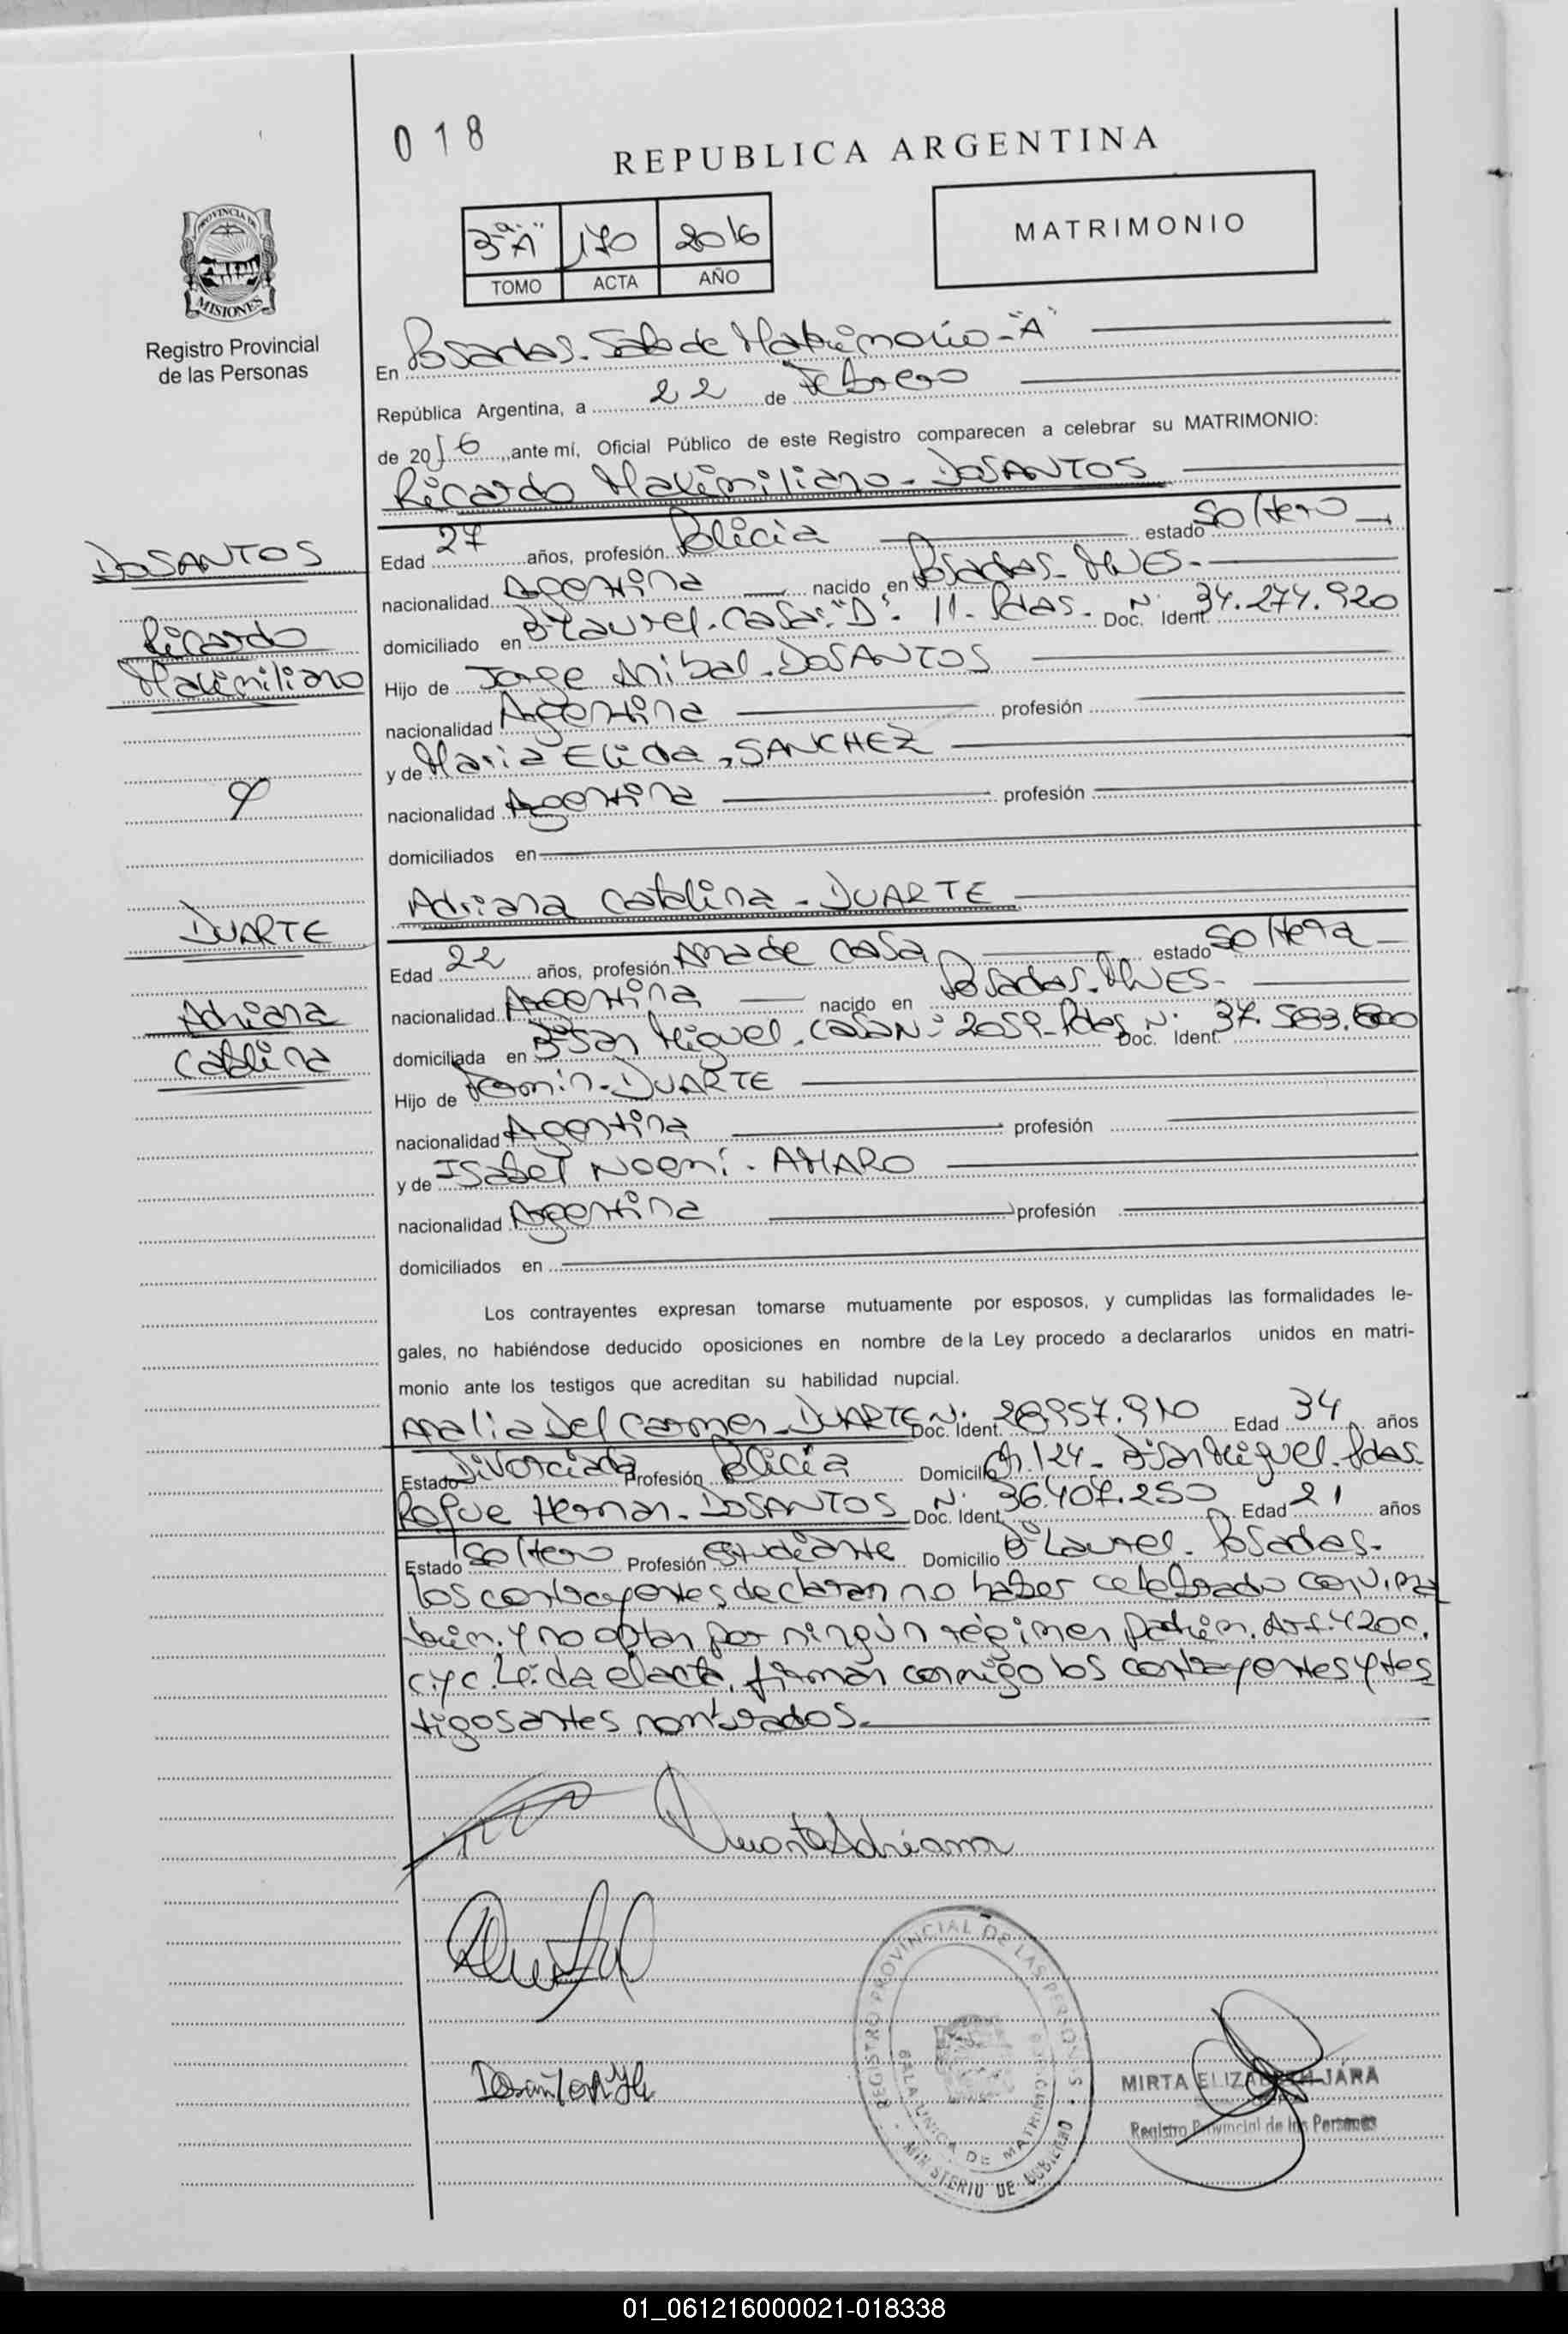 018
REPUBLICA ARGENTINA
3ª "A" 170 2016
TOMO ACTA AÑO
MATRIMONIO
PROVINCIA DE
MISIONES
Registro Provincial
de las Personas
En Posadas. Sala de Matrimonio - "A"
República Argentina, a 22 de Febrero
de 2016, ante mí, Oficial Público de este Registro comparecen a celebrar su MATRIMONIO:
Ricardo Maximiliano - DOSANTOS
DOSANTOS
Ricardo
Maximiliano
Edad 27 años, profesión Policia estado Soltero
nacionalidad Argentina nacido en Posadas - MNES -
domiciliado en Bº Laurel. Casa: "D". 11. Pdas. Doc. Ident. Nº 34.274.920
Hijo de Jorge Anibal - DOSANTOS
nacionalidad Argentina profesión
y de Maria Elida, SANCHEZ
y
nacionalidad Argentina profesión
domiciliados en
Adriana Catalina - DUARTE
DUARTE
Adriana
Catalina
Edad 22 años, profesión Ama de casa estado Soltera
nacionalidad Argentina nacido en Posadas. MNES -
domiciliada en Bº San Miguel. Casa Nº 2059 - Pdas Doc. Ident. Nº 37.583.
Hijo de Fermin - DUARTE
nacionalidad Argentina profesión
y de Isabel Noemi - AMARO
nacionalidad Argentina profesión
domiciliados en
Los contrayentes expresan tomarse mutuamente por esposos, y cumplidas las formalidades le-
gales, no habiéndose deducido oposiciones en nombre de la Ley procedo a declararlos unidos en matri-
monio ante los testigos que acreditan su habilidad nupcial.
Analia Del Carmen - DUARTE Doc. Ident. Nº 28.957.910 Edad 34 años
Estado Divorciada Profesión Policia Domicilio Ch. 124 - Bº San Miguel. Pdas.
Roque Hernan - DOSANTOS Doc. Ident. Nº 36.407.250 Edad 21 años
Estado Soltero Profesión Estudiante Domicilio Bº Laurel - Posadas.
los contrayentes declaran no haber celebrado conv. ma
trim. y no optan por ningún régimen patrim. Art. 420 c.
c. y c. Leida el acta, firman conmigo los contrayentes y tes
tigos antes nombrados.
Duarte Adriana
REGISTRO PROVINCIAL DE LAS PERSONAS
SALA UNICA DE MATRIMONIO
MINISTERIO DE GOBIERNO
MIRTA ELIZABETH JARA
Registro Provincial de las Personas
01_061216000021-018338